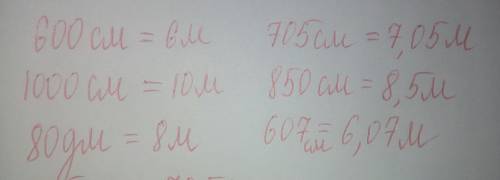 600 см = 6 м
705 см = 7,05 м
1000 см = 10 м
850 см = 8,5 м
80 дм = 8 м
607 см = 6,07 м